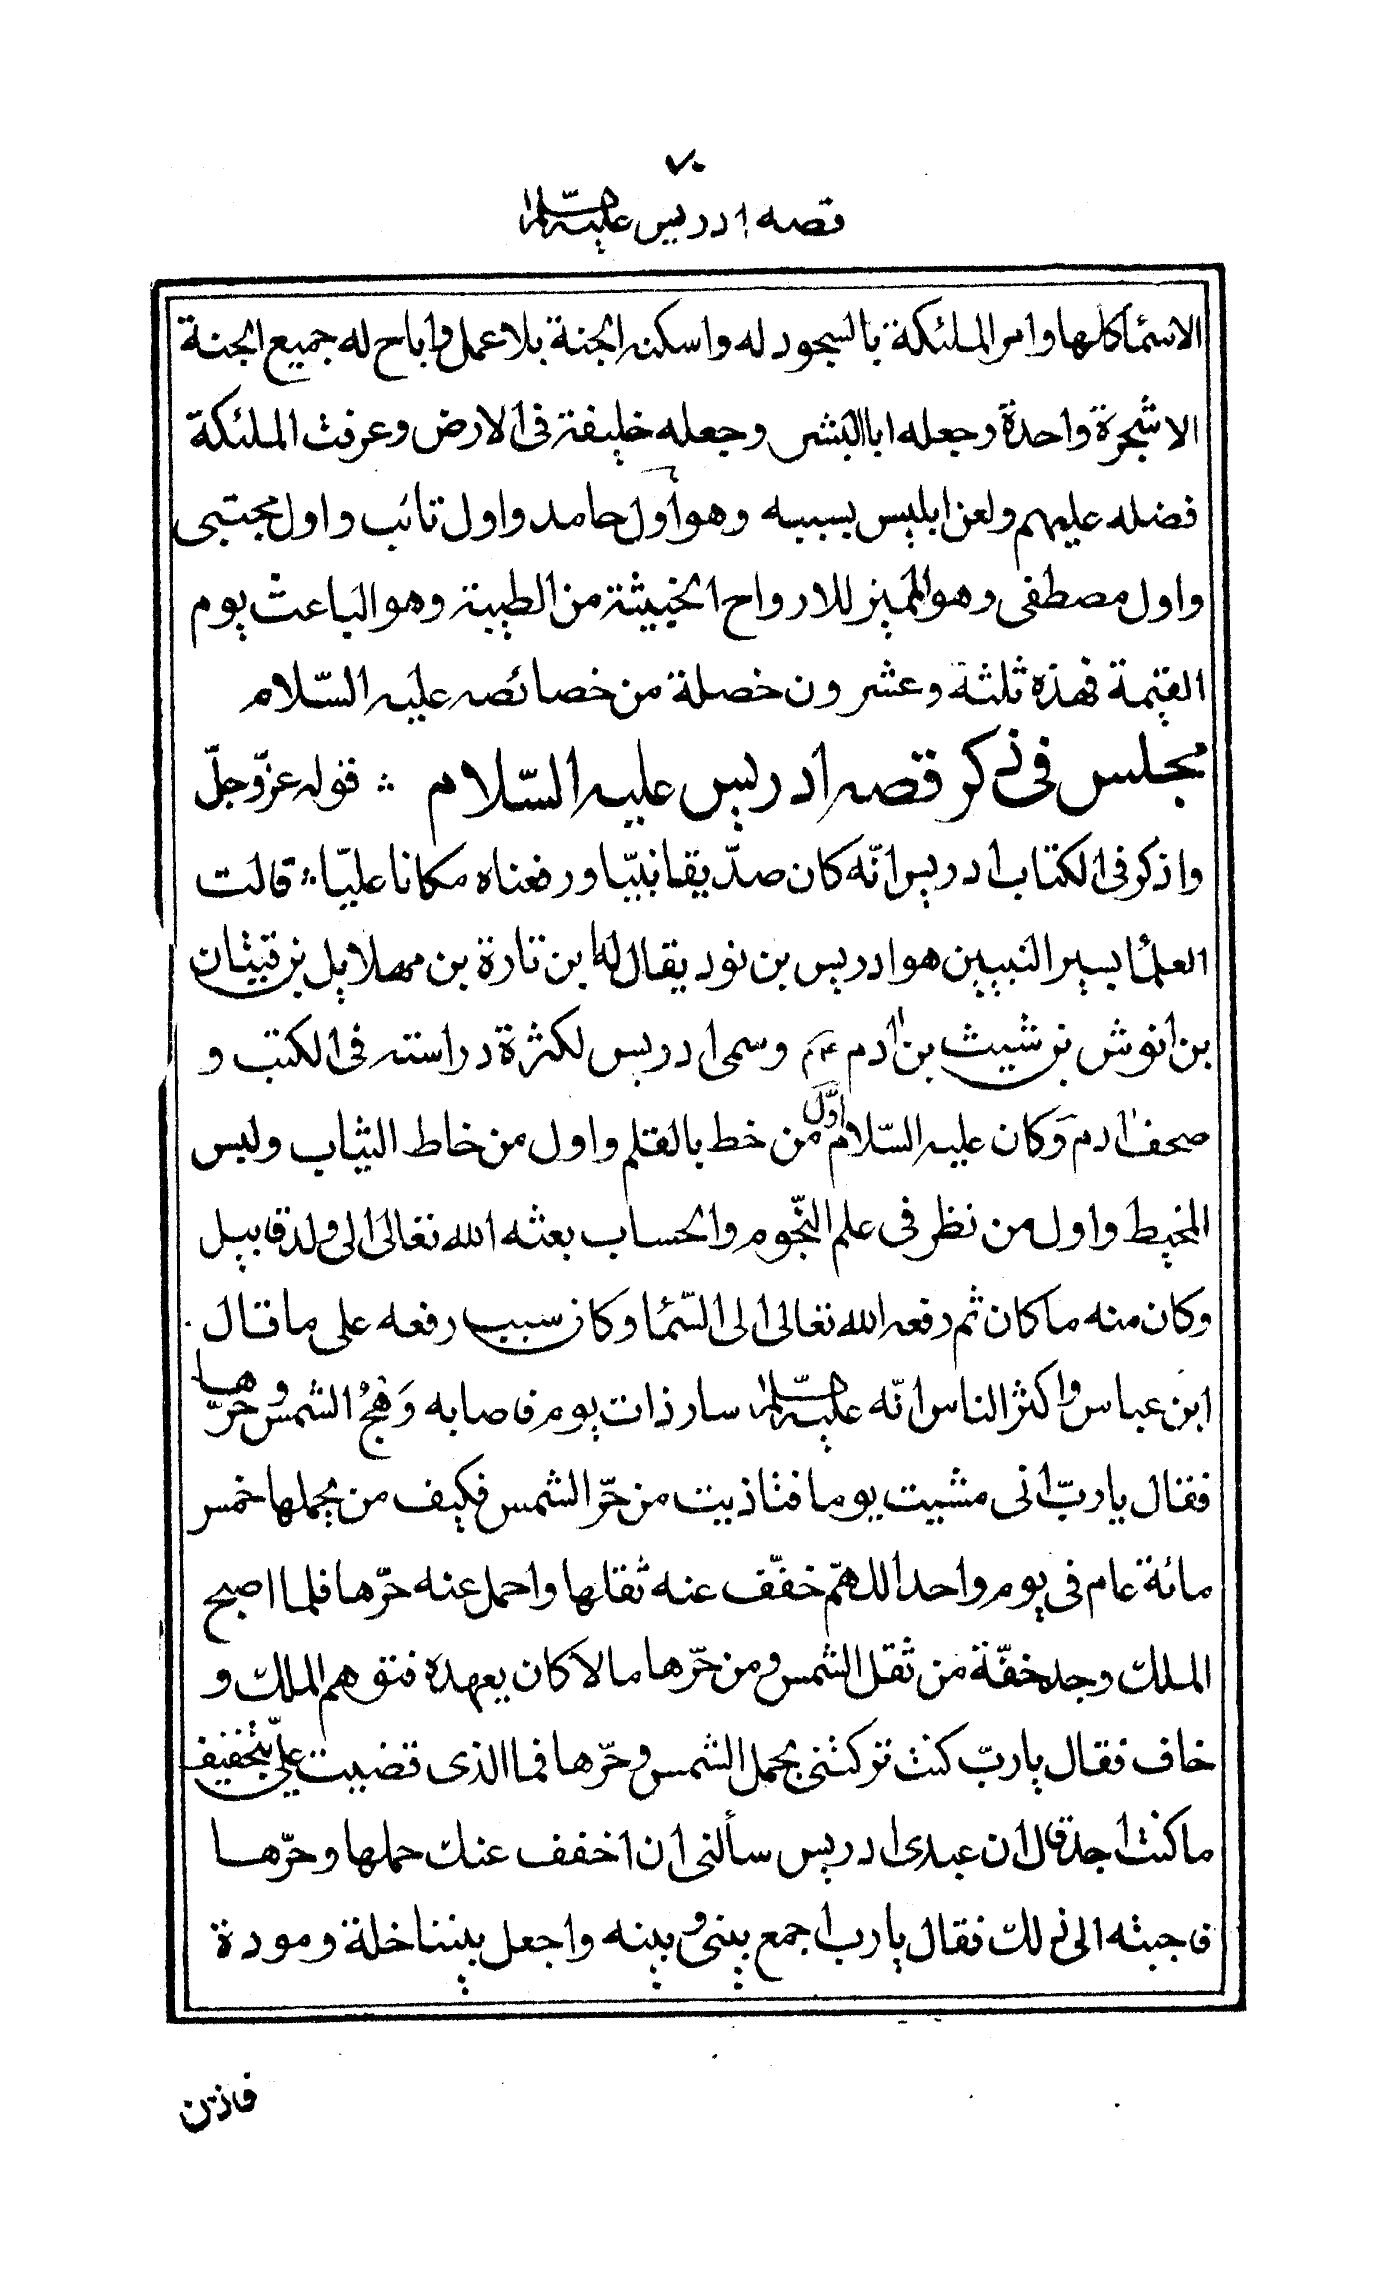 ٧٠
قصه ادريس عليه السلم
الاسمٓا كلها وامر الملئكة بالسجود له واسكنه الجنة بلا عمل واباح له جميع الجنة
الا شجرة واحدة وجعله ابا البشر وجعله خليفة فى الارض وعرفت الملئكة
فضله عليهم ولعن ابليس بسببه وهو أول حامد واول تائب واول مجتبى
واول مصطفى وهو المميز للارواح الخبيثة من الطيبة وهو الباعث يوم
القيمة فهذه ثلثة وعشرون خصلة من خصائصه عليه السّلام
مجلس فى ذكر قصه ادريس عليه السّلام ∴ قوله عزّ وجلّ
واذكر فى الكتاب ادريس انّه كان صدّيقا نبيّا ورفعناه مكانا عليّا ∴ قالت
العلمٓا بسير النبيين هو ادريس بن نود يقال له ابن تارة بن مهلاييل بن قيثان
بن انوش بن شيث بن ادم عم وسمى ادريس لكثرة دراسته فى الكتب و
صحف ادم وكان عليه السّلام اوّل من خط بالقلم واول من خاط الثياب ولبس
المخيط واول من نظر فى علم النّجوم والحساب بعثه الله تعالى الى ولد قابيل
وكان منه ما كان ثم رفعه الله تعالى الى السّمٓا وكان سبب رفعه على ما قال
ابن عباس واكثر الناس انّه عليه السّلم سار ذات يوم فاصابه وَهْجُ الشمس وحرّها
فقال يا ربّ انى مشيت يوما فتاذيت من حرّ الشمس فكيف من يحملها خمس
مائة عام فى يوم واحد اللهمّ خفّف عنه ثقلها واحمل عنه حرّها فلما اصبح
الملك وجد خفّة من ثقل الشمس ومن حرّها ما لا كان يعهده فتوهم الملك و
خاف فقال يا ربّ كنت تركتنى بحمل الشمس وحرّها فما الذى قضيت علىّ بتخفيف
ما كنت اجد قال ان عبدى ادريس سألنى ان اخفف عنك حملها وحرّها
فاجبته الى ذلك فقال يا رب اجمع بينى وبينه واجعل بيننا خلة ومودة
فاذن